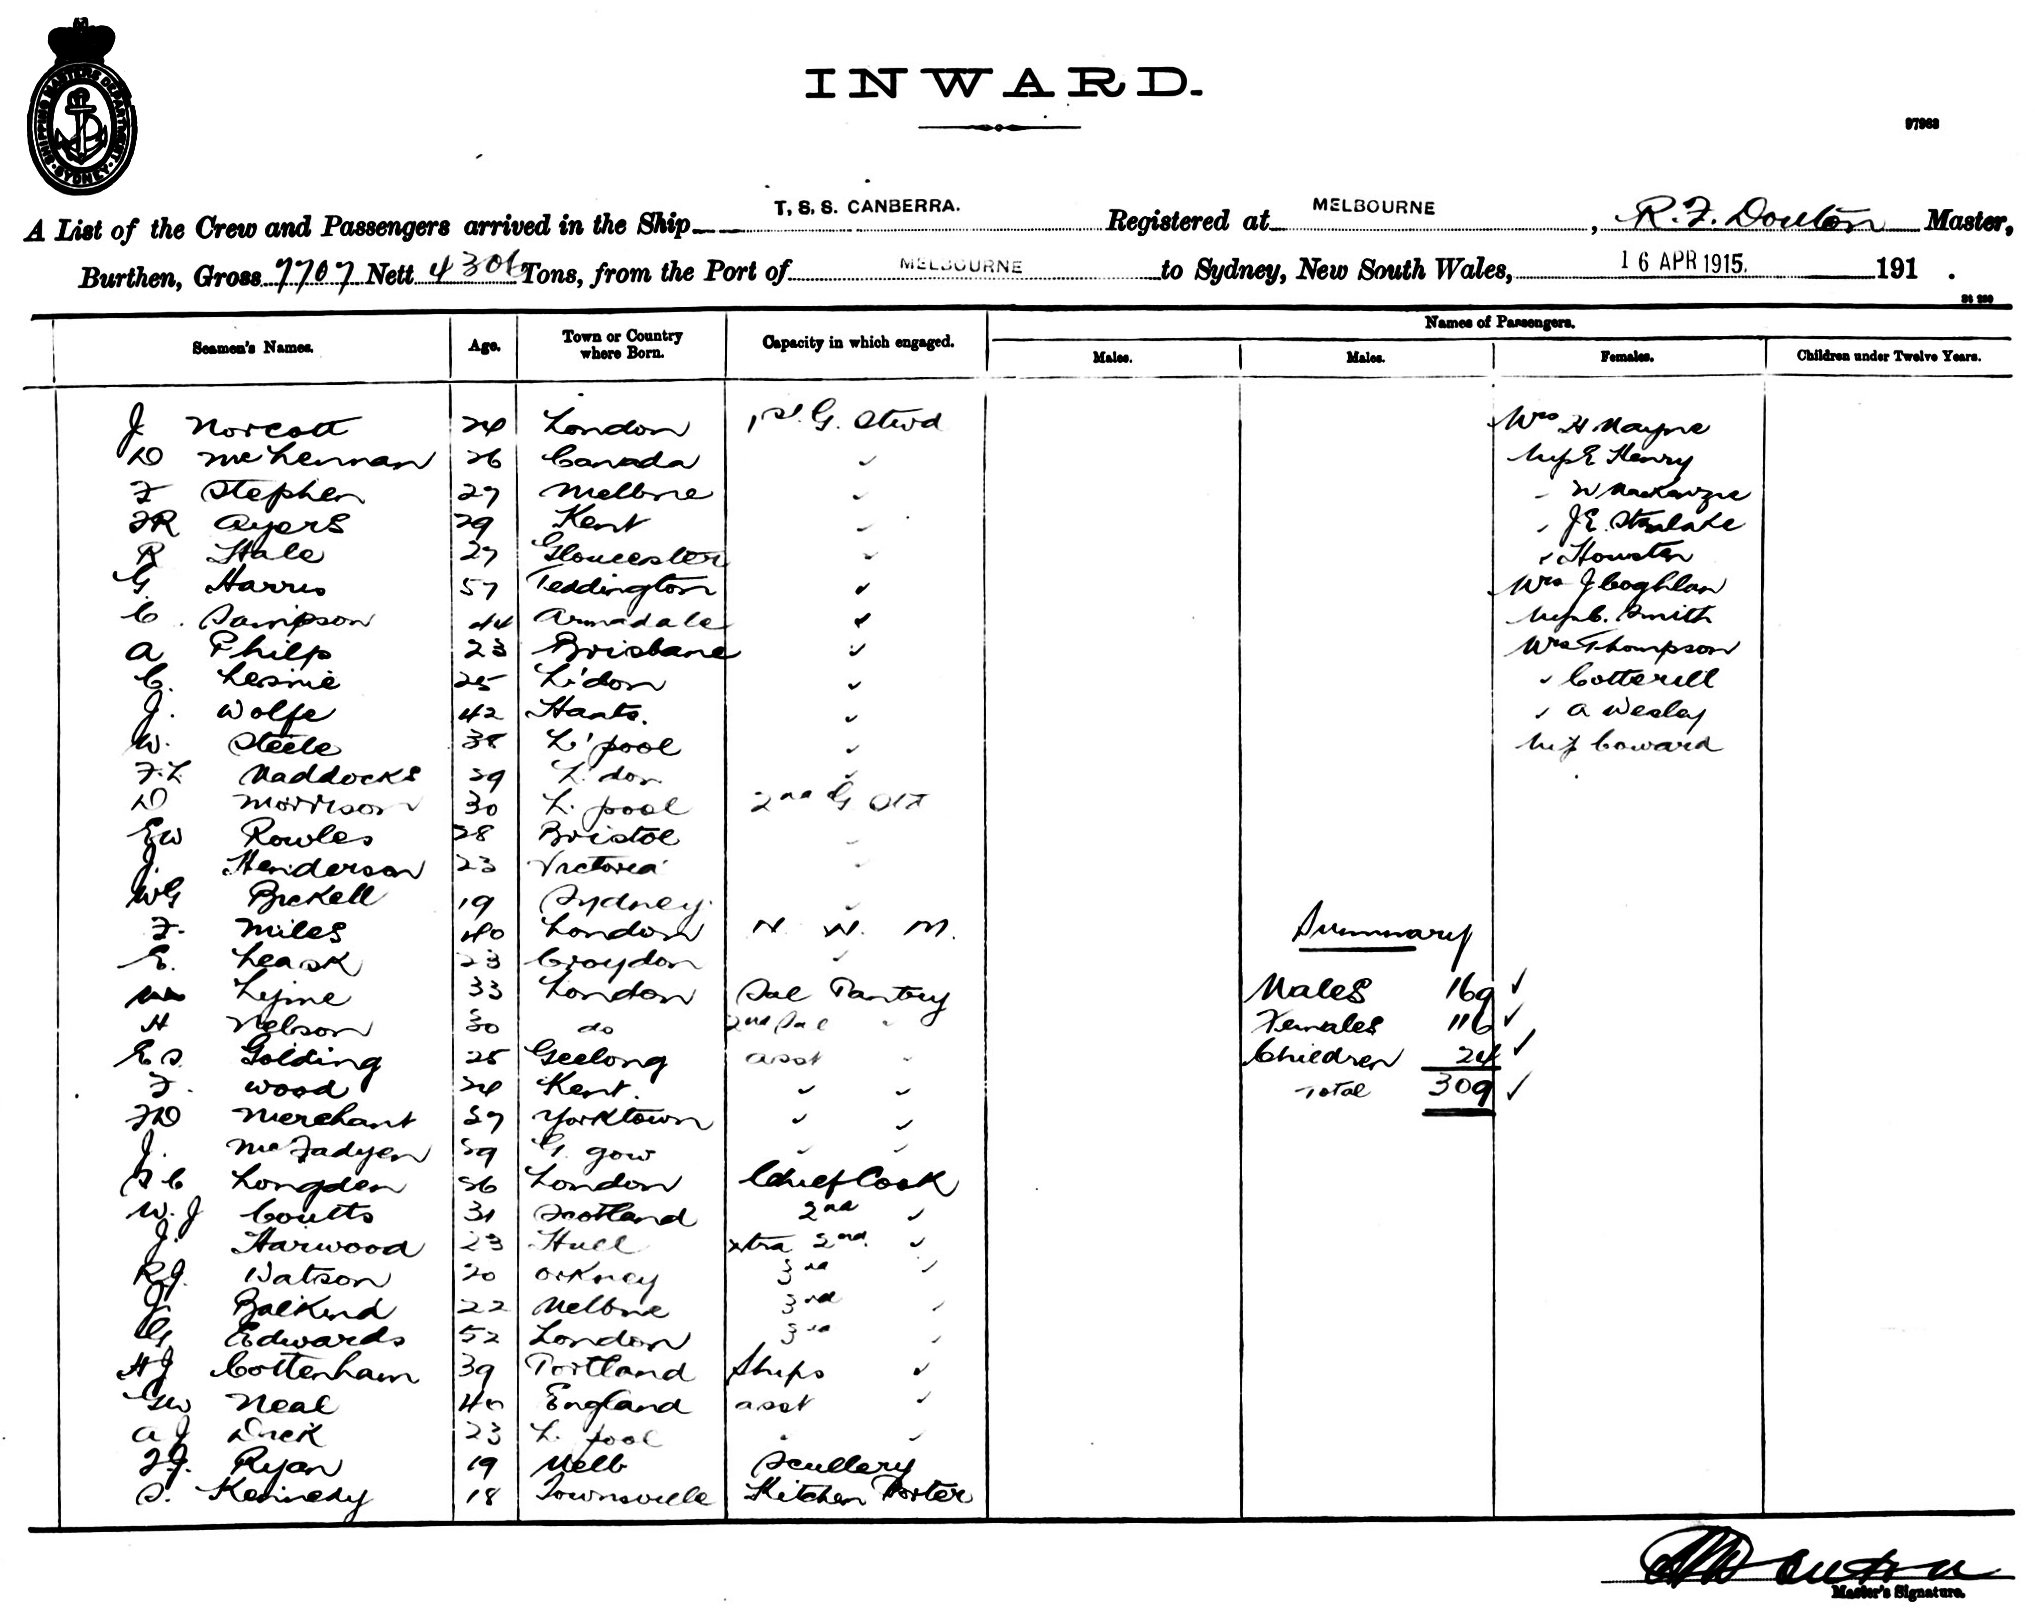 SHIPPING MASTERS DEPARTMENT. SYDNEY
INWARD.
97963
A List of the Crew and Passengers arrived in the Ship T.S.S. CANBERRA. Registered at MELBOURNE, R.F. Doulton Master,
Burthen, Gross 7707 Nett 4306 Tons, from the Port of MELBOURNE to Sydney, New South Wales, 16 APR 1915. 191 .
Seamen's Names. Age. Town or Country where Born. Capacity in which engaged. Names of Passengers.
Males. Males. Females. Children under Twelve Years.
J Norcott 24 London 1st G. Stwd Mrs H Mayne
D McLennan 26 Canada " E Henry
F Stephen 27 Melbne " " Mackenzie
FR Ayers 29 Kent " " J E
R Hale 27 Gloucester " " Houston
G Harris 57 Teddington " Mrs J Coghlan
C. Sampson 44 Armadale " C. Smith
A Philp 23 Brisbane " Mrs Thompson
C. Leslie 25 L'don " " Cotterell
J. Wolfe 42 Hants. " " A Wesley
W. Steele 38 L'pool " Coward
F.L Maddocks 29 L'don "
D Morrison 30 L. pool 2nd G
EW Rowles 28 Bristol "
J. Henderson 23 Victoria "
WG Bickell 19 Sydney. "
F. Miles 40 London N. W. M. Summary
E. Leask 23 Croydon "
Lyne 33 London Sal Pantry Males 169
H Nelson 30 do 2nd Sal " Females 116
E S. Golding 25 Geelong asst " Children 24
F. Wood 24 Kent. " " Total 309
FD Merchant 37 Yorktown " "
J. McFadyen 39 G. gow " "
S C Longden 36 London Chief Cook
W. J Coutts 31 Scotland 2nd "
J. Harwood 23 Hull xtra 2nd. "
R.J. Watson 20 Orkney 3rd "
J Balkind 22 Melbne 3rd "
G Edwards 52 London 3rd "
HJ Cottenham 39 Portland Ships "
GW Neal 40 England asst "
A J Dick 23 L. pool " "
F.J. Ryan 19 Melb Scullery
S. Kennedy 18 Townsville Kitchen Porter
Master's Signature.